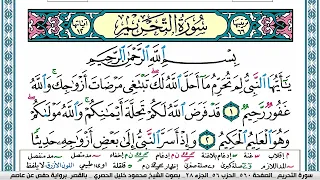 سُورَةُ التَّحْرِيمِ
بِسْمِ اللَّهِ الرَّحْمَٰنِ الرَّحِيمِ
يَٰٓأَيُّهَا ٱلنَّبِىُّ لِمَ تُحَرِّمُ مَآ أَحَلَّ ٱللَّهُ لَكَ تَبْتَغِى مَرْضَاتَ أَزْوَٰجِكَ وَٱللَّهُ
غَفُورٌ رَّحِيمٌ ١ قَدْ فَرَضَ ٱللَّهُ لَكُمْ تَحِلَّةَ أَيْمَٰنِكُمْ وَٱللَّهُ مَوْلَىٰكُمْ
وَهُوَ ٱلْعَلِيمُ ٱلْحَكِيمُ ٢ وَإِذْ أَسَرَّ ٱلنَّبِىُّ إِلَىٰ بَعْضِ أَزْوَٰجِهِۦ حَدِيثًا
سورة التحريم - الصفحة ٥٦٠ - الجزء ٢٨ بصوت الشيخ محمود خليل الحصري - بالقصر برواية حفص عن عاصم